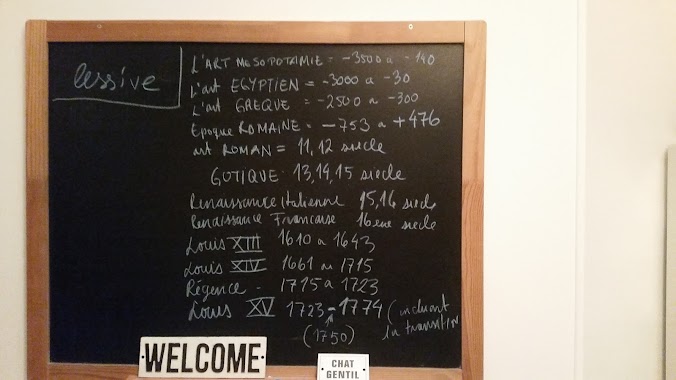 lessive
L'ART MESOPOTAMIE = -3500 à -140
L'art EGYPTIEN = -3000 à -30
L'art GREQUE = -2500 à -300
Epoque ROMAINE = -753 à +476
art ROMAN = 11, 12 siecle
GOTIQUE 13, 14, 15 siecle
Renaissance italienne 15, 16 siecle
Renaissance Francaise 16eme siecle
Louis XIII 1610 à 1643
Louis XIV 1661 au 1715
Régence - 1715 à 1723
Louis XV 1723 - 1774 (incluant
la transition
(1750)
WELCOME
CHAT
GENTIL